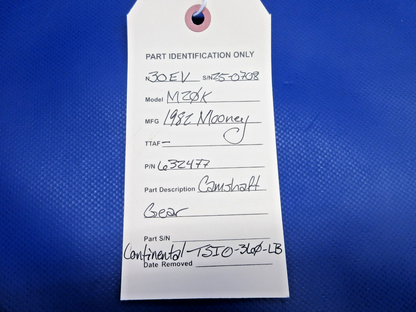 PART IDENTIFICATION ONLY
N30EV S/N25-0708
Model M20K
MFG 1982 Mooney
TTAF —
P/N 632477
Part Description Camshaft
Gear
Part S/N
Continental-TSIO-360-LB
Date Removed